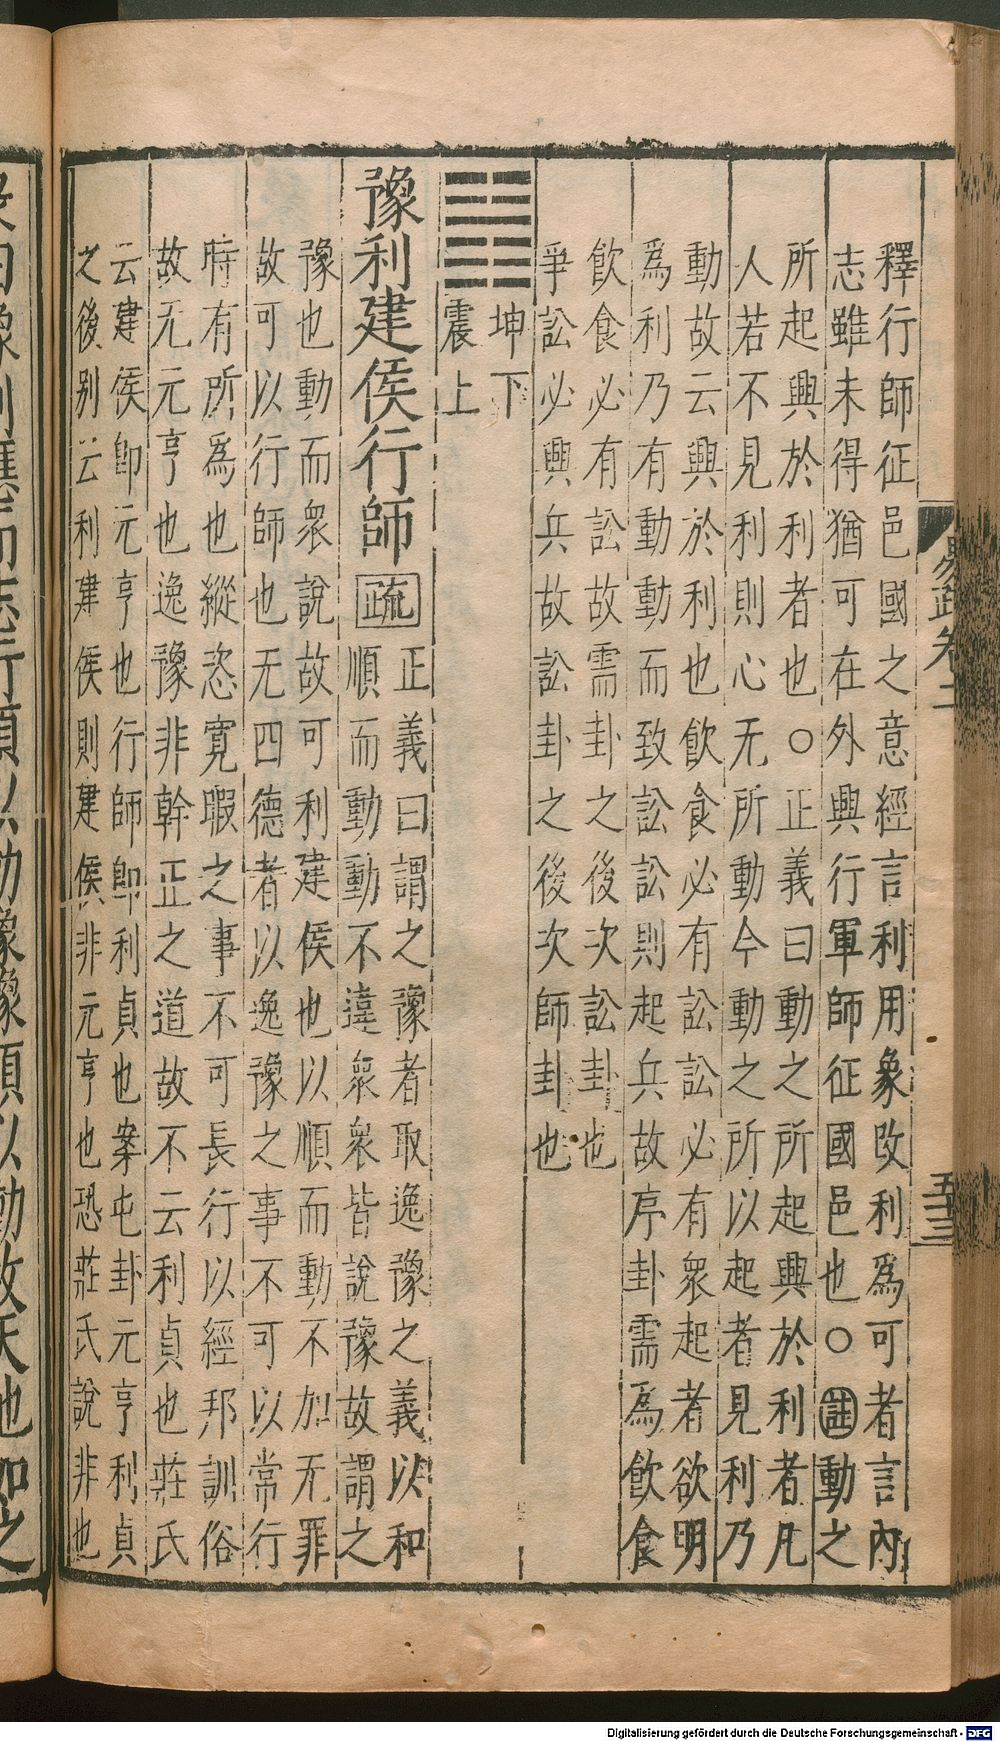 易疏卷二
五十三
釋行師征邑國之意經言利用象改利爲可者言內
志雖未得猶可在外興行軍師征國邑也○註動之
所起興於利者也○正義曰動之所起興於利者凡
人若不見利則心无所動今動之所以起者見利乃
動故云興於利也飲食必有訟訟必有衆起者欲明
爲利乃有動動而致訟訟則起兵故序卦需爲飲食
飲食必有訟故需卦之後次訟卦也
爭訟必興兵故訟卦之後次師卦也
坤下
震上
豫利建侯行師疏
正義曰謂之豫者取逸豫之義以和
順而動動不違衆衆皆說豫故謂之
豫也動而衆說故可利建侯也以順而動不加无罪
故可以行師也无四德者以逸豫之事不可以常行
時有所爲也縱恣寛暇之事不可長行以經邦訓俗
故无元亨也逸豫非幹正之道故不云利貞也莊氏
云建侯卽元亨也行師卽利貞也案屯卦元亨利貞
之後别云利建侯則建侯非元亨也恐莊氏說非也
行順以動豫豫順以動故天地如之
Digitalisierung gefördert durch die Deutsche Forschungsgemeinschaft - DFG